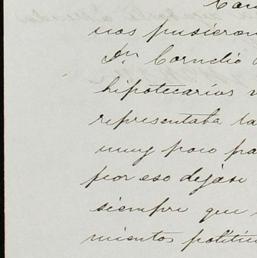 nos pusieron
Dn. Cornelio
hipotecarios
representaba la
muy poco pa
por eso dejase
siempre que
mientos politic